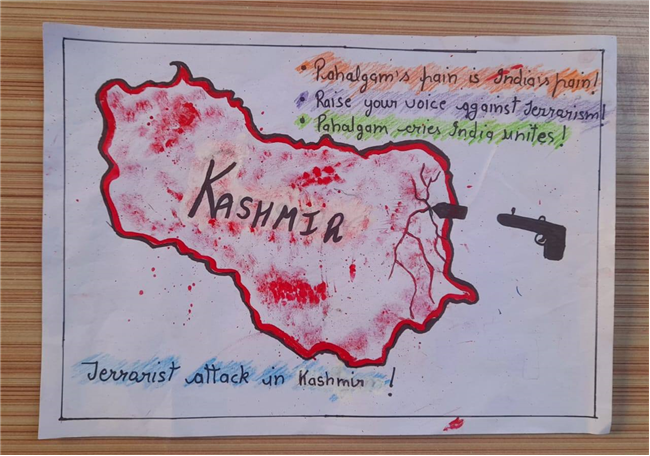 • Pahalgam's pain is India's pain!
• Raise your voice against Terrarism!
• Pahalgam cries India unites!
KASHMIR
Terrarist attack in Kashmir !